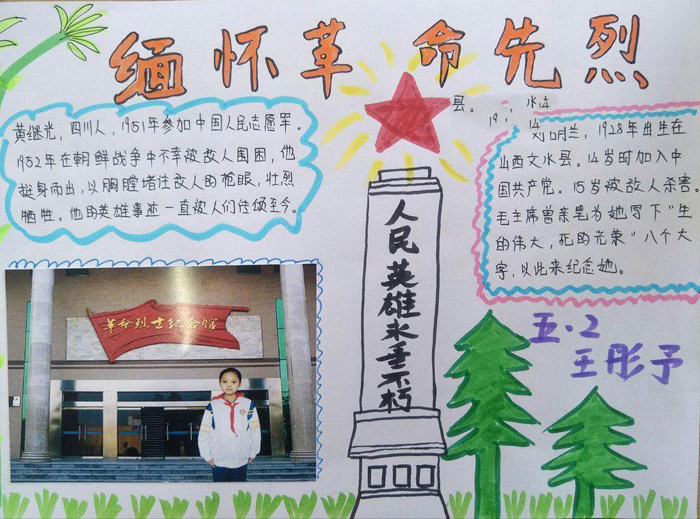 缅怀革命先烈
黄继光，四川人，1951年参加中国人民志愿军。
1952年在朝鲜战争中不幸被敌人围困，他
挺身而出，以胸膛堵住敌人的枪眼，壮烈
牺牲。他的英雄事迹一直被人们传颂至今。
革命烈士纪念馆
人民英雄永垂不朽
县。
刘胡兰，1928年出生在
山西文水县。14岁时加入中
国共产党。15岁被敌人杀害。
毛主席曾亲笔为她写下“生
的伟大，死的光荣”八个大
字，以此来纪念她。
五.2
王彤予